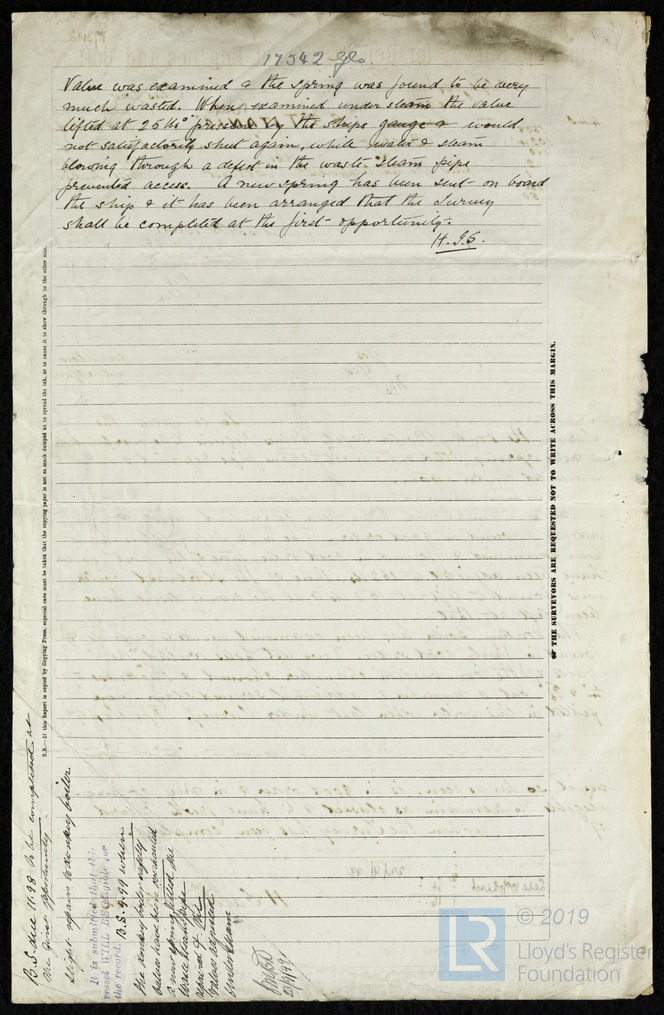 17542 Gls.
Valve was examined & the spring was found to be very
much wasted. When examined under steam the valve
lifted at 25 lbs pressure by the ships gauge & would
not satisfactorily shut again, while water & steam
blowing through a defect in the waste steam pipe
prevented access. A new spring has been sent on board
the ship & it has been arranged that the Survey
shall be completed at the first opportunity.
H.J.S.
N.B.—If this Report is copied by Copying Press, especial care must be taken that the copying paper is not so much damped as to spread the ink, or to cause it to show through to the other side.
THE SURVEYORS ARE REQUESTED NOT TO WRITE ACROSS THIS MARGIN.
B.S. due 11.98 to be completed at
the first opportunity
Slight repairs to donkey boiler
It is submitted that this
vessel WILL BE eligible for
the record. B.S. 9.99 when
the donkey boiler safety
valves have been overhauled
a new spring fitted the
waste steam pipe
repaired & the
valves adjusted
under steam
© 2019
LR
Lloyd's Register
Foundation